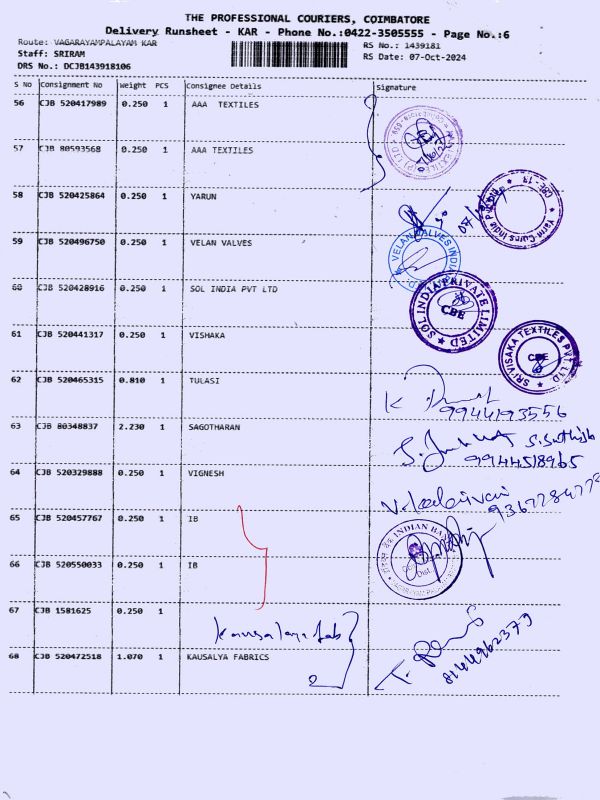 THE PROFESSIONAL COURIERS, COIMBATORE
Delivery Runsheet - KAR - Phone No.:0422-3505555 - Page No.:6
Route: VAGARAYAMPALAYAM KAR
RS No.: 1439181
Staff: SRIRAM
RS Date: 07-Oct-2024
DRS No.: DCJB143918106
S No Consignment No Weight PCS Consignee Details Signature
56 CJB 520417989 0.250 1 AAA TEXTILES
57 CJB 80593568 0.250 1 AAA TEXTILES
58 CJB 520425864 0.250 1 YARUN
59 CJB 520496750 0.250 1 VELAN VALVES
VELAN VALVES INDIA
60 CJB 520428916 0.250 1 SOL INDIA PVT LTD
SOL INDIA PRIVATE LIMITED
CBE
61 CJB 520441317 0.250 1 VISHAKA
SRI VISAKA TEXTILES PVT LTD
CBE
62 CJB 520465315 0.810 1 TULASI
9944193556
63 CJB 80348837 2.230 1 SAGOTHARAN
S. Sathish
9944518965
64 CJB 520329888 0.250 1 VIGNESH
65 CJB 520457767 0.250 1 IB
INDIAN BANK
66 CJB 520550033 0.250 1 IB
67 CJB 1581625 0.250 1
Kausalya fab
68 CJB 520472518 1.070 1 KAUSALYA FABRICS
2
8144962379